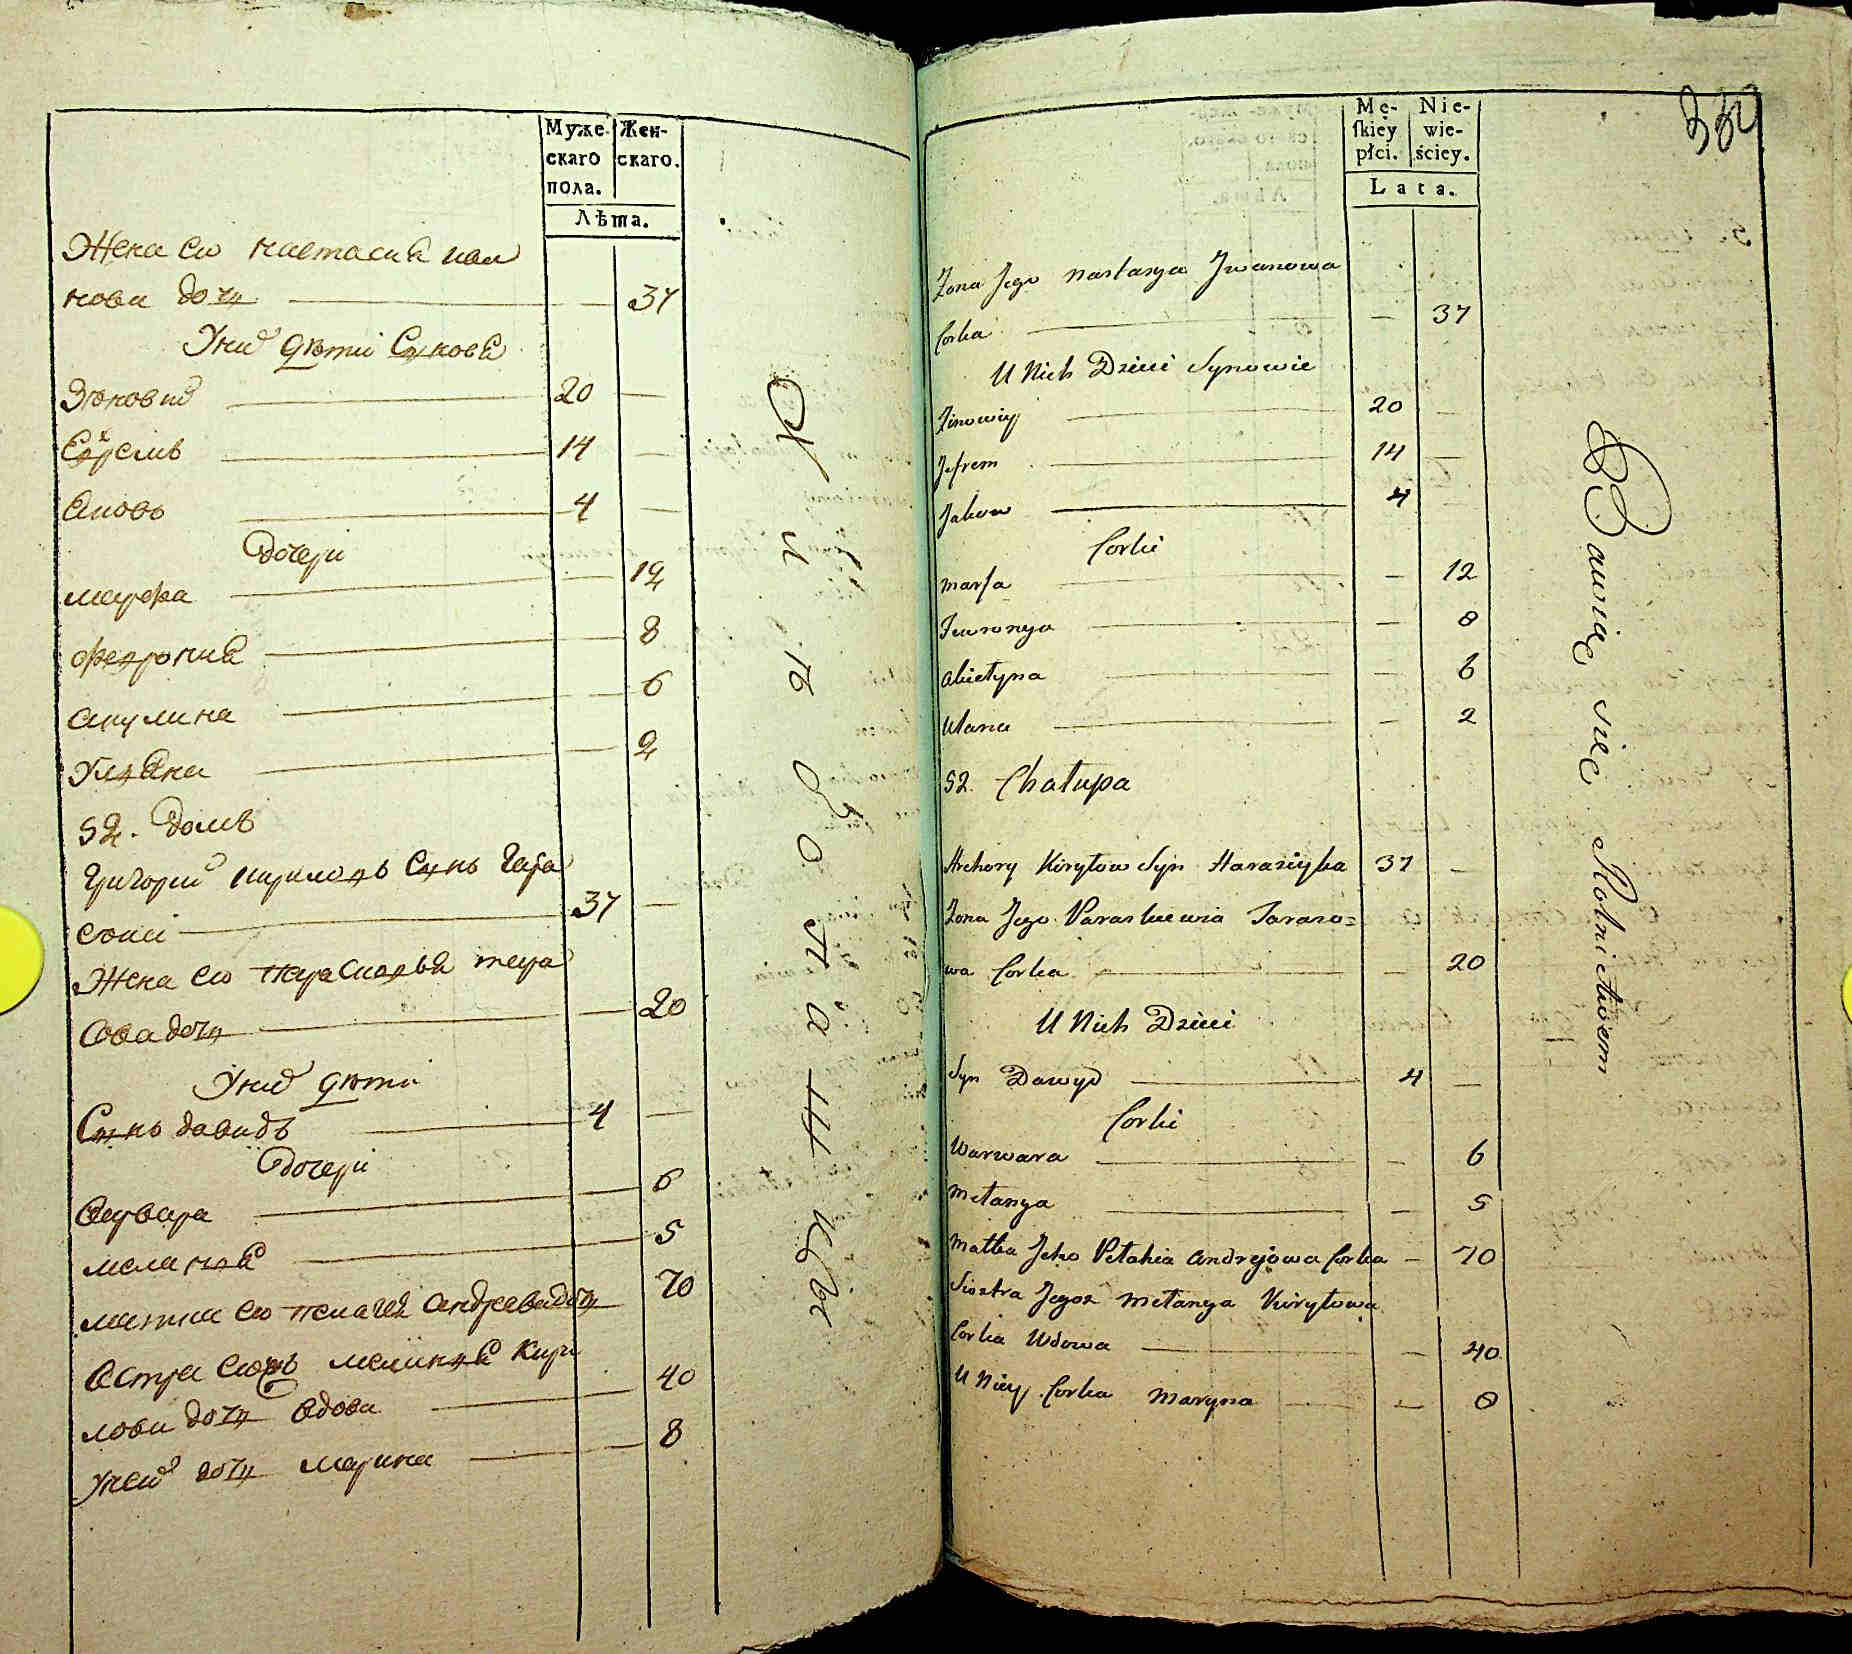 Муже-
скаго
пола.
Жен-
скаго.
Лѣта.
Жена ево настасия ива
нова дочь — — 37
У них дѣти Сыновя
Зѣновий — 20 —
Ефремъ — 14 —
Аковъ — 4 —
Дочери
марфа — — 12
феврония — — 8
акулина — — 6
Ульяна — — 2
52. Домъ
Григорий кириловъ Сынъ Гара
сюки — 37 —
Жена ево парасковья тара
сова дочь — — 20
У них дѣти
Сынъ давидъ — 4 —
Дочери
варвара — — 6
мелания — — 5
матка ево пелагея андреева дочь 70
Сестра меланья кири
лова дочь вдова — — 40
У ней дочь марина — — 8
330
Mę-
skiey
płci.
Nie-
wie-
ściey.
Lata.
Żona Jego Nastasya Jwanowa
Corka — — 37
U Nich Dzieci Synowie
Zinowiy — 20 —
Jefrem — 14 —
Jakow — 4 —
Corki
Marfa — — 12
Fewronya — — 8
Akietyna — — 6
Ulana — — 2
52. Chałupa
Hrehory Kiryłow Syn Harasiyka 37 —
Żona Jego Paraskiewia Taraso=
wa Corka — — 20
U Nich Dzieci
Syn Dawyd — 4 —
Corki
Warwara — — 6
Metanya — — 5
Matka Jeho Pełahia Andrejowa Corka — 70
Siostra Jegoż Metanya Kiryłowa
Corka Wdowa — — 40
U Niey Corka Maryna — — 8
Bawiąc się Rolnictwem